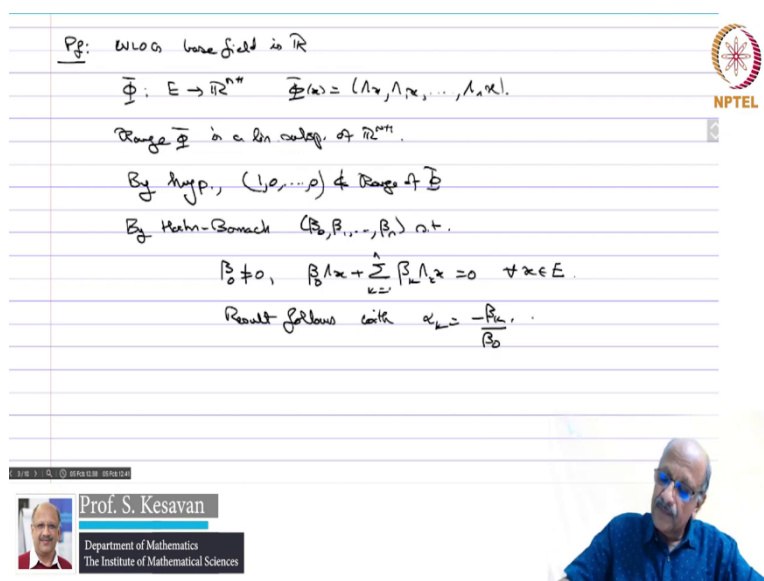 Pf: WLOG base field is ℝ
Φ̄ : E → ℝⁿ⁺¹ Φ̄(x) = (Λx, Λ₁x, ..., Λₙx).
Range Φ̄ is a lin subsp. of ℝⁿ⁺¹.
By hyp., (1,0,...,0) ∉ Range of Φ̄
By Hahn-Banach (β₀, β₁, ..., βₙ) s.t.
β₀ ≠ 0, β₀Λx + Σₖ₌₁ⁿ βₖΛₖx = 0 ∀ x ∈ E.
Result follows with αₖ = -βₖ/β₀.
NPTEL
Prof. S. Kesavan
Department of Mathematics
The Institute of Mathematical Sciences